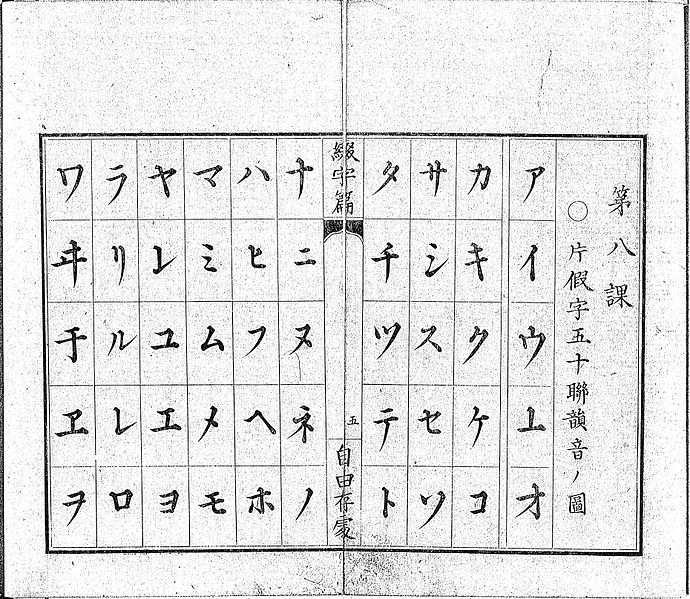 第八課
〇片假字五十聯韻音ノ圖
アイウ𛀀オ
カキクケコ
サシスセソ
タチツテト
綴字篇 五 自由存處
ナニヌネノ
ハヒフヘホ
マミムメモ
ヤ𛄠ユエヨ
ラリルレロ
ワヰ𛄢ヱヲ